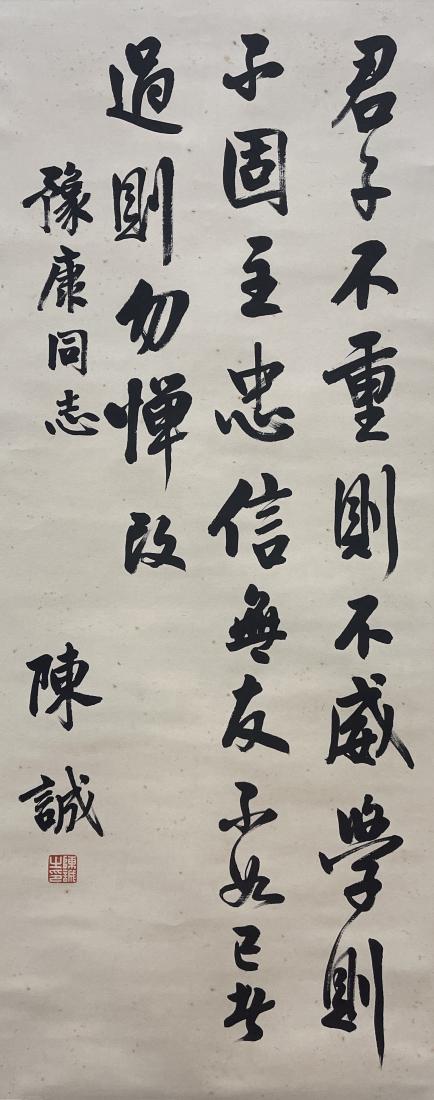 君子不重則不威學則
不固主忠信無友不如己者
過則勿憚改
豫康同志
陳誠
陳誠之印